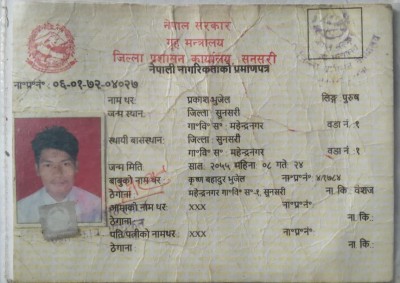 नेपाल सरकार
गृह मन्त्रालय
जिल्ला प्रशासन कार्यालय, सुनसरी
नेपाली नागरिकताको प्रमाणपत्र
ना॰प्र॰नं॰ : ०६-०१-७२-०४०२७
नाम थर: प्रकाश भुजेल लिङ्ग: पुरुष
जन्म स्थान: जिल्ला : सुनसरी
गा॰वि॰ स॰ : महेन्द्रनगर वडा नं. : १
स्थायी बासस्थान: जिल्ला : सुनसरी
गा॰वि॰ स॰ : महेन्द्रनगर वडा नं : १
जन्म मिति: साल: २०५५ महिना: ०८ गते: २४
बाबुको नाम थर: कृष्ण बहादुर भुजेल ना॰प्र॰नं॰ ४/१७८४
ठेगाना: महेन्द्रनगर गा॰वि॰ स॰-१, सुनसरी ना. कि : वंशज
आमाको नाम थर: xxx ना॰प्र॰नं॰
ठेगाना: ना. कि :
पति/पत्नीको नामथर: xxx ना॰प्र॰नं॰
ठेगाना: ना. कि :